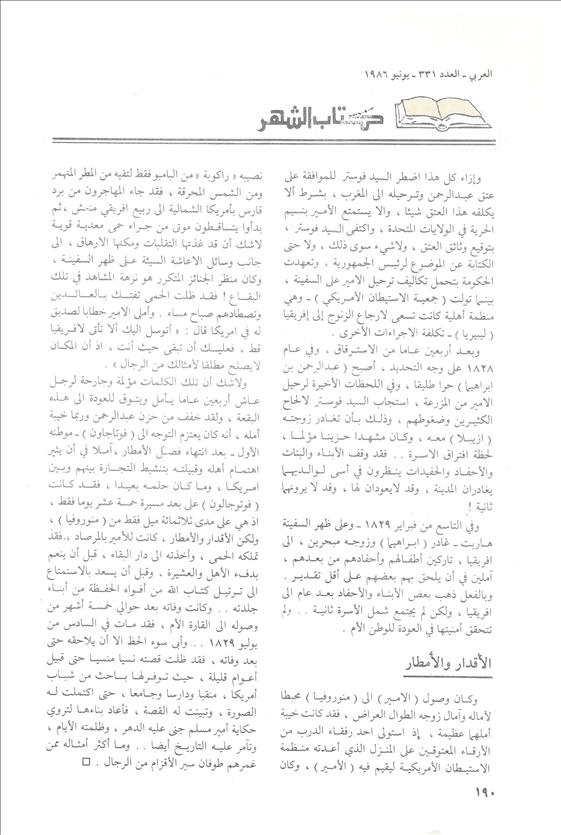 العربي ـ العدد ٣٣١ ـ يونيو ١٩٨٦
كتاب الشهر
وإزاء كل هذا اضطر السيد فوستر للموافقة على
عتق عبدالرحمن وترحيله الى المغرب ، بشرط ألا
يكلفه هذا العتق شيئا ، والا يستمتع الأمير بنسيم
الحرية في الولايات المتحدة ، واكتفى السيد فوستر ،
بتوقيع وثائق العتق ، ولاشيء سوى ذلك ، ولا حتى
الكتابة عن الموضوع لرئيس الجمهورية ، وتعهدت
الحكومة بتحمل تكاليف ترحيل الأمير على السفينة ،
بينما تولت ( جمعية الاستيطان الأمريكي ) ـ وهي
منظمة أهلية كانت تسعى لارجاع الزنوج إلى إفريقيا
( ليبيريا ) ـ تكلفة الاجراءات الأخرى .
وبعد أربعين عاما من الاسترقاق ، وفي عام
١٨٢٨ على وجه التحديد ، أصبح ( عبدالرحمن بن
ابراهيما ) حرا طليقا ، وفي اللحظات الأخيرة لرحيل
الامير من المزرعة ، استجاب السيد فوستر لالحاح
الكثيرين وضغوطهم ، وذلك بأن تغادر زوجته
( ازيبلا ) معه ، وكان مشهدا حزينا مؤلما ،
لحظة افتراق الاسرة .. فقد وقف الأبناء والبنات
والأحفاد والحفيدات ينظرون في أسى لوالديهما
يغادران المدينة ، وقد لايعودان لها ، وقد لا يرونهما
ثانية !
وفي التاسع من فبراير ١٨٢٩ ـ وعلى ظهر السفينة
هاربت ـ غادر ( ابراهيما ) وزوجه مبحرين ، الى
افريقيا ، تاركين أطفالهم وأحفادهم من بعدهم ،
آملين في أن يلحق بهم بعضهم على أقل تقدير .
وبالفعل ذهب بعض الأبناء والأحفاد بعد عام الى
افريقيا ، ولكن لم يجتمع شمل الأسرة ثانية .. ولم
تتحقق أمنيتها في العودة للوطن الأم .
الأقدار والأمطار
وكان وصول ( الامير ) الى ( منروفيا ) محبطا
لآماله وآمال زوجه الطوال العراض ، فقد كانت خيبة
أملهما عظيمة ، إذ استولى احد رفقاء الدرب من
الأرقاء المعتوقين على المنزل الذي أعدته منظمة
الاستيطان الأمريكية ليقيم فيه ( الأمير ) ، وكان
نصيبه « راكوبة » من البامبو فقط لتقيه من المطر المنهمر
ومن الشمس المحرقة ، فقد جاء المهاجرون من برد
قارس بأمريكا الشمالية الى ربيع افريقي منعش ، ثم
بدأوا يتساقطون موتى من جراء حمى معدية قوية
لاشك أن قد غذتها التقلبات ومكنها الارهاق ، الى
جانب وسائل الاعاشة السيئة على ظهر السفينة ،
وكان منظر الجنائز المتكرر هو نزهة المشاهد في تلك
البقاع ! فقد ظلت الحمى تفتك بالعائدين
وتصطادهم صباح مساء . وأملى الامير خطابا لصديق
له في امريكا قال : « أتوسل اليك ألا تأتى لافريقيا
قط ، فعليك أن تبقى حيث أنت ، اذ أن المكان
لايصلح مطلقا لأمثالك من الرجال » .
ولاشك أن تلك الكلمات مؤلمة وجارحة لرجل
عاش أربعين عاما يأمل ويتوق للعودة الى هذه
البقعة ، ولقد خفف من حزن عبدالرحمن وربما خيبة
أمله ، أنه كان يعتزم التوجه الى ( فوتاجاون ) ـ موطنه
الأول ـ بعد انتهاء فصل الأمطار ، آملا في أن يثير
اهتمام أهله وقبيلته بتنشيط التجارة بينهم وبين
امريكا ، وما كان حلمه بعيدا ، فقد كانت
( فوتوجالون ) على بعد مسيرة خمسة عشر يوما فقط ،
اذ هي على مدى ثلاثمائة ميل فقط من ( منروفيا ) ،
ولكن الأقدار والأمطار ، كانت للأمير بالمرصاد ، فقد
تملكه الحمى ، وأخذته الى دار البقاء ، قبل أن ينعم
بدفء الأهل والعشيرة ، وقبل أن يسعد بالاستمتاع
الى ترتيل كتاب الله من أفواه الحفظة من أبناء
جلدته .. وكانت وفاته بعد حوالي خمسة أشهر من
وصوله الى القارة الأم ، فقد مات في السادس من
يوليو ١٨٢٩ .. وأبى سوء الحظ الا أن يلاحقه حتى
بعد وفاته ، فقد ظلت قصته نسيا منسيا حتى قبيل
أعوام قليلة ، حيث توفر لها باحث من شباب
أمريكا ، منقبا ودارسا وجامعا ، حتى اكتملت له
الصورة ، وتبينت له القصة ، فأعاد بناءها لتروي
حكاية أمير مسلم جنى عليه الدهر ، وظلمته الأيام ،
وتآمر عليه التاريخ أيضا .. وما أكثر أمثاله ممن
غمرهم طوفان سير الأقزام من الرجال .
١٩٠